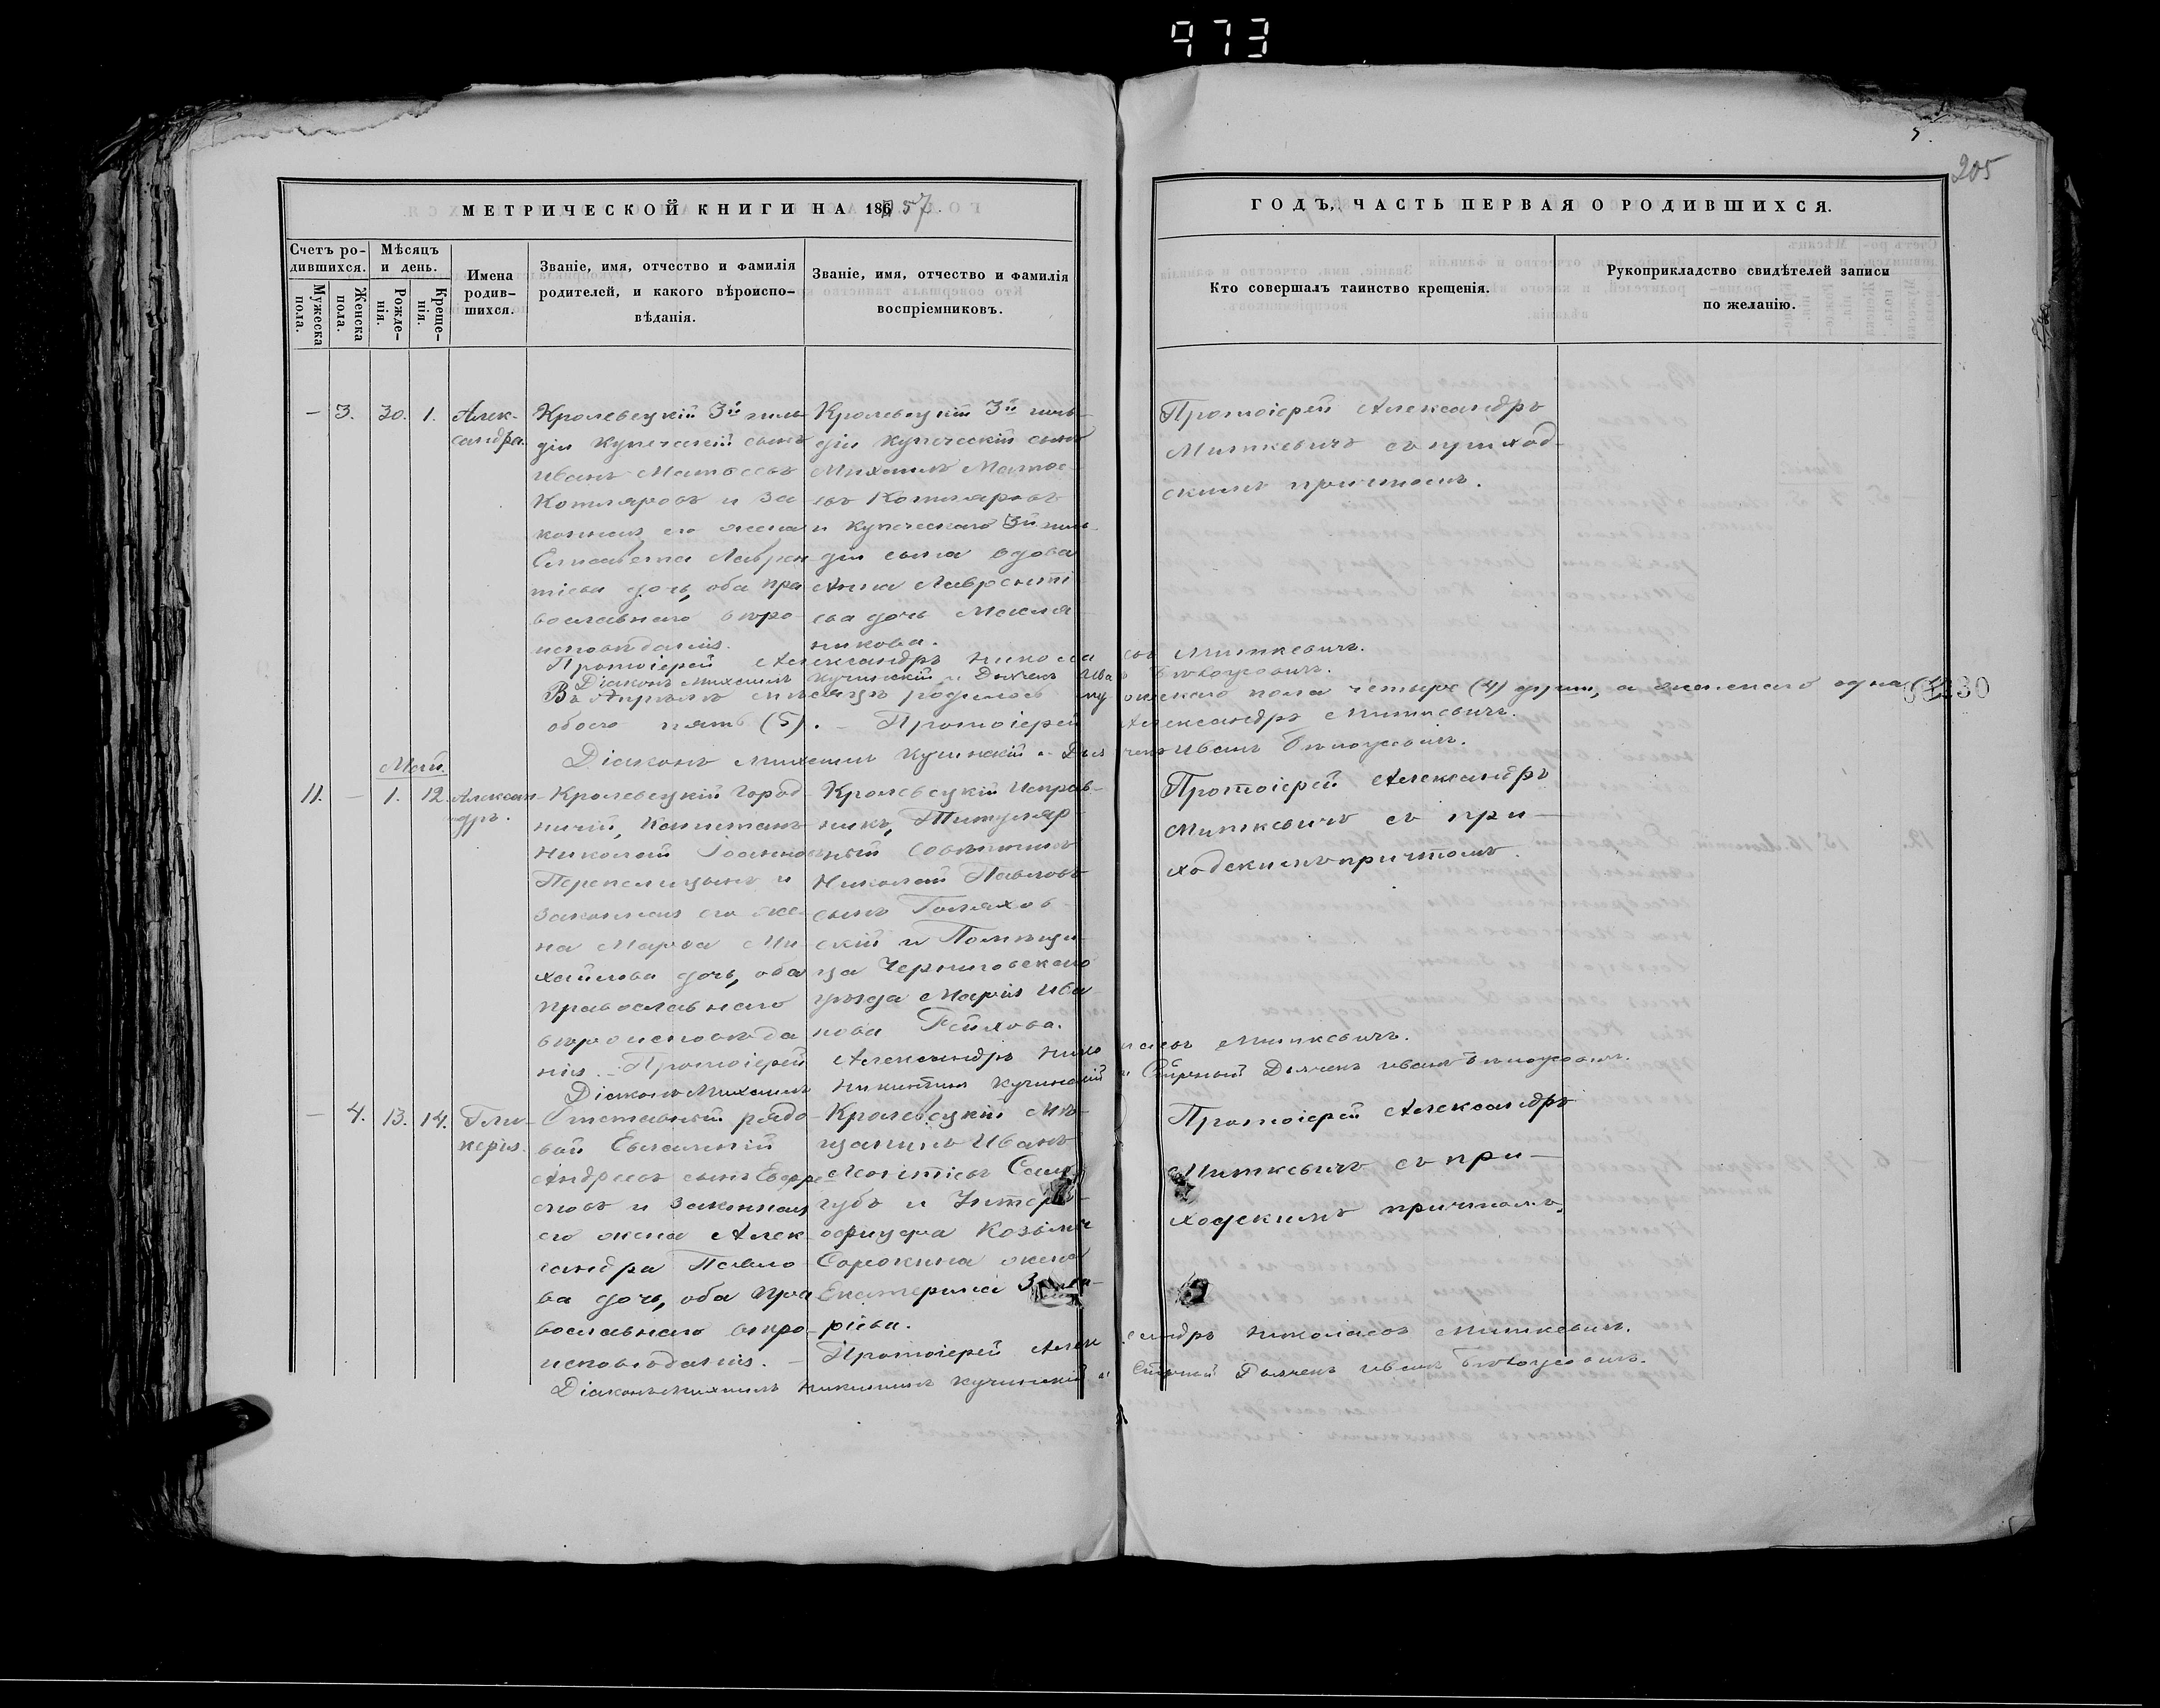 973
5.
205
МЕТРИЧЕСКОЙ КНИГИ НА 1857
ГОДЪ, ЧАСТЬ ПЕРВАЯ О РОДИВШИХСЯ.
Счетъ ро-
дившихся.
Мужеска
пола.
Женска
пола.
Мѣсяцъ
и день.
Рожде-
нія.
Креще-
нія.
Имена
родив-
шихся.
Званіе, имя, отчество и фамилія
родителей, и какого вѣроиспо-
вѣданія.
Званіе, имя, отчество и фамилія
воспріемниковъ.
Кто совершалъ таинство крещенія.
Рукоприкладство свидѣтелей записи
по желанію.
— 3. 30. 1.
Алек-
сандра.
Кролевецкій 3й гиль-
діи купеческій сынъ
Иванъ Матвеевъ
Котляровъ и за
конная его жена
Елисавета Лаврен
тіева дочь, оба пра
вославнаго вѣро-
исповѣданія.
Кролевецкій 3й гиль-
діи купеческій сынъ
Михаилъ Матве-
евъ Котляровъ
и купеческаго 3й гиль-
діи сына вдова
Анна Лавренті
ева дочь
никова.
Протоіерей Александръ
Миткевичъ съ приход-
скимъ причтомъ.
Протоіерей Александръ Никола евъ Миткевичъ.
Діаконъ Михаилъ Кучинскій и Дьячекъ Ива Бѣлоусовичъ.
Въ Апрѣлѣ мѣсяцѣ родилось му жескаго пола четыре (4) души, а женскаго одна (1)
обоего пять (5). — Протоіерей Александръ Миткевичъ.
Діаконъ Михаилъ Кучинскій и Дья чекъ Иванъ Бѣлоусовичъ.
Май.
11. — 1. 12.
Алексан-
дръ.
Кролевецкій Город-
ничій, Капитанъ
Николай Іоанновъ
Перепелицынъ и
законная его же-
на Марѳа Ми-
хайлова дочь, оба
православнаго
вѣроисповѣда
нія.
Кролевецкій Исправ-
никъ, Титуляр
ный Совѣтникъ
Николай Павловъ
сынъ
скій и Помѣщи-
ца Черниговскаго
уѣзда Марія Ива
нова
Протоіерей Александръ
Миткевичъ съ при-
ходскимъ причтомъ.
Протоіерей Александръ Нико лаевъ Миткевичъ.
Діаконъ Михаилъ Никитинъ Кучинскій и Дьячекъ Иванъ Бѣлоусовичъ.
— 4. 13. 14.
Гли-
керія.
Отставный рядо-
вой Евгеній
Андреевъ сынъ
и законная
его жена Алек-
сандра Павло-
ва дочь, оба пра
вославнаго вѣро-
исповѣданія.
Кролевецкій Мѣ-
щанинъ Иванъ
Леонтіевъ
и Унтеръ-
офицера Козьмы
Сорокина жена
Екатерина
ріева.
Протоіерей Александръ
Миткевичъ съ при-
ходскимъ причтомъ.
Протоіерей Алек сандръ Николаевъ Миткевичъ.
Діаконъ Михаилъ Никитинъ Кучинскій и Дьячекъ Иванъ Бѣлоусовичъ.